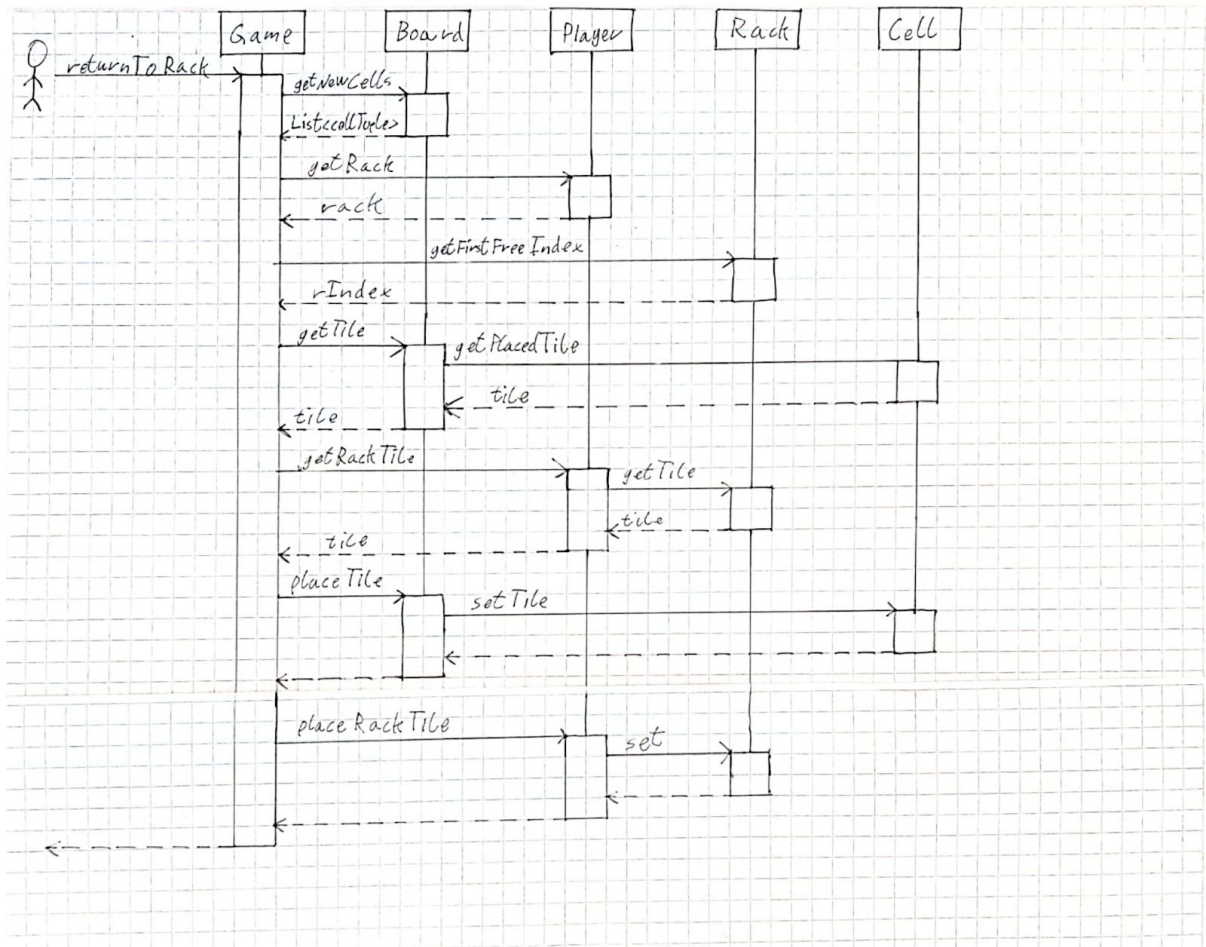 Game
Board
Player
Rack
Cell
returnToRack
getNewCells
List<cellTuple>
getRack
rack
getFirstFreeIndex
rIndex
getTile
getPlacedTile
tile
tile
getRackTile
getTile
tile
tile
placeTile
setTile
placeRackTile
set